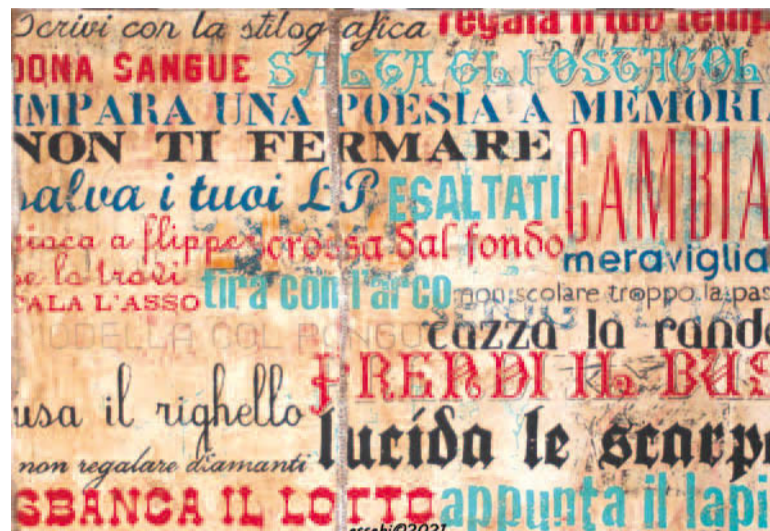 Scrivi con la stilografica regala il tuo temp
DONA SANGUE SALTA GLI OSTACOL
IMPARA UNA POESIA A MEMORI
NON TI FERMARE
salva i tuoi LP ESALTATI CAMBIA
gioca a flipper crossa dal fondo meraviglia
se la trovi tira con l'arco non scolare troppo la pas
CALA L'ASSO
MODELLA COL PONGO cazza la rand
PRENDI IL BUS
usa il righello
lucida le scarp
non regalare diamanti
SBANCA IL LOTTO appunta il lapi
©2021